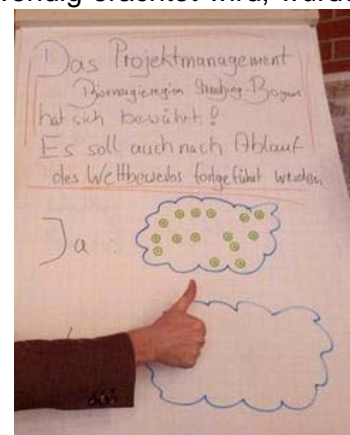 wendig erachtet wird, wurd
Das Projektmanagement
Bioenergieregion Straubing-Bogen
hat sich bewährt!
Es soll auch nach Ablauf
des Wettbewerbs fortgeführt werden
Ja